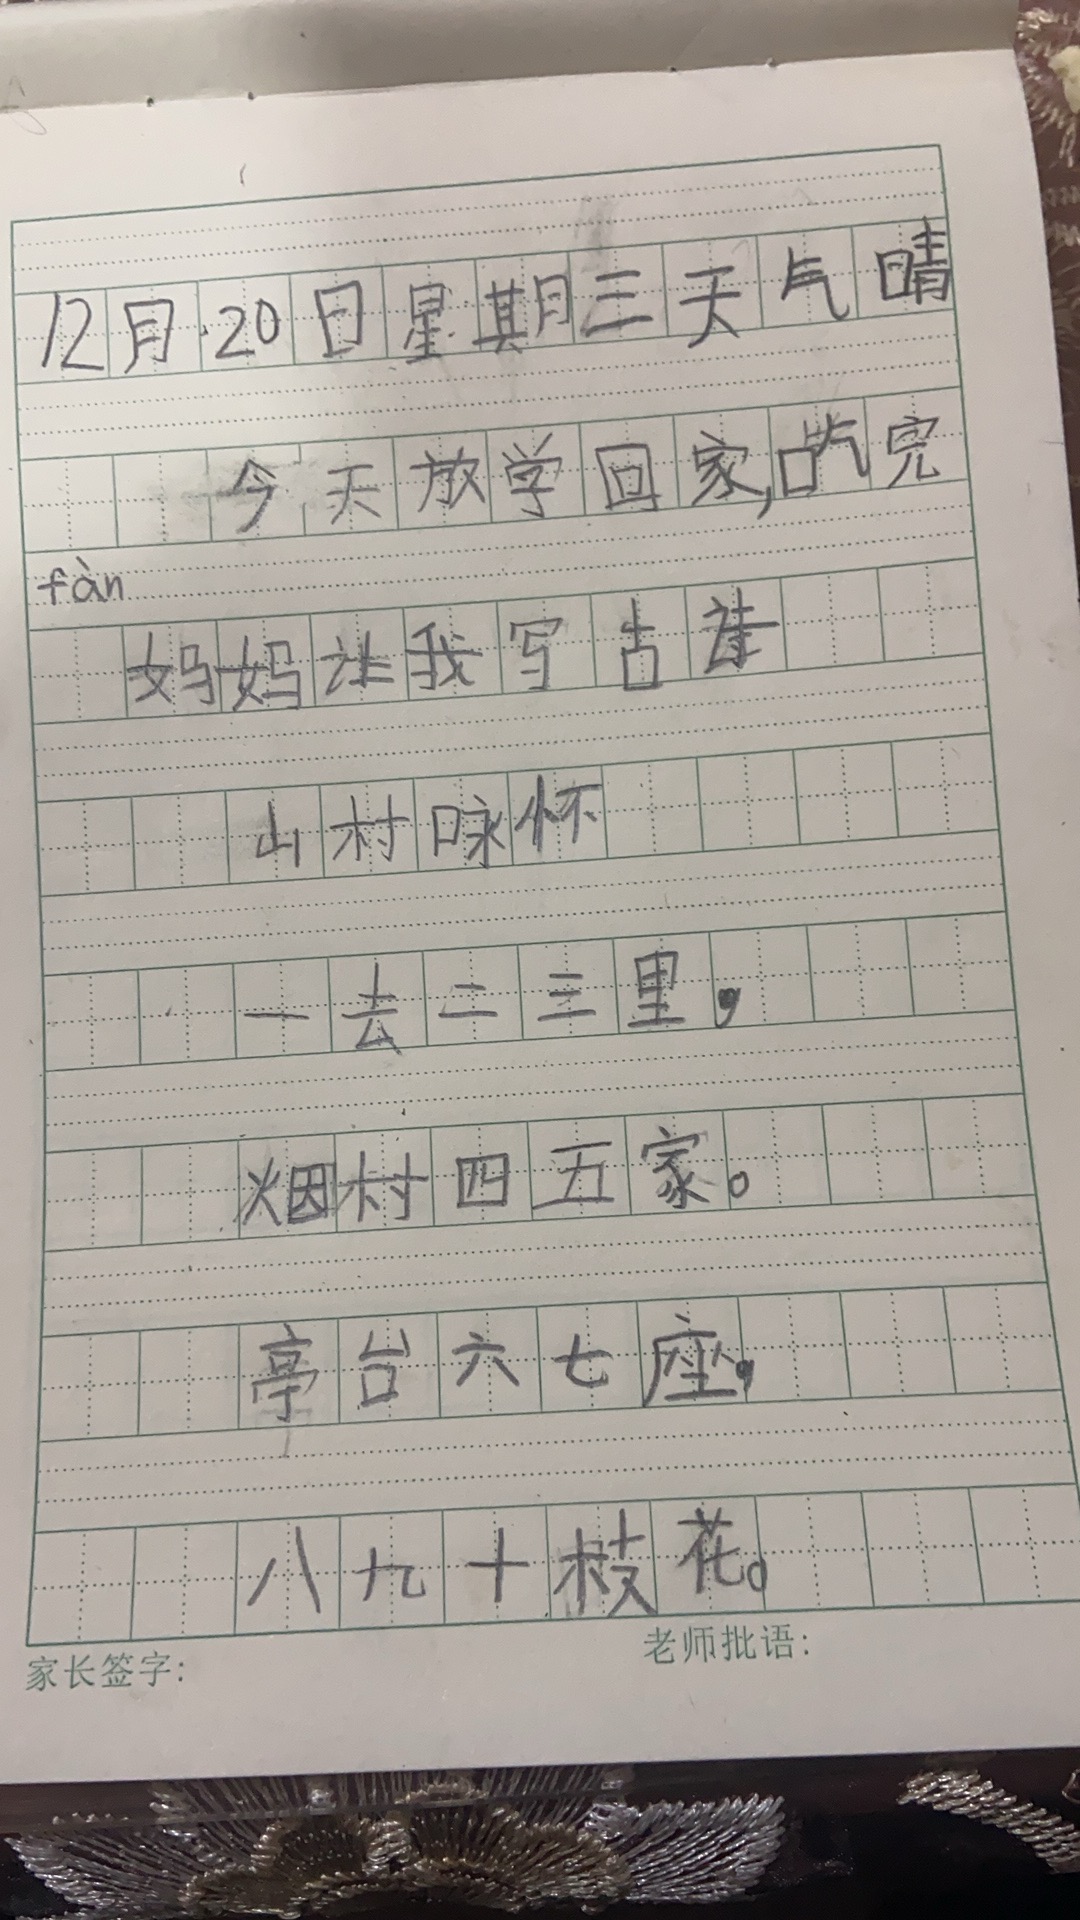 12月20日星期三天气晴
今天放学回家,吃完
fàn
妈妈让我写古诗
山村咏怀
一去二三里，
烟村四五家。
亭台六七座，
八九十枝花。
家长签字:
老师批语: